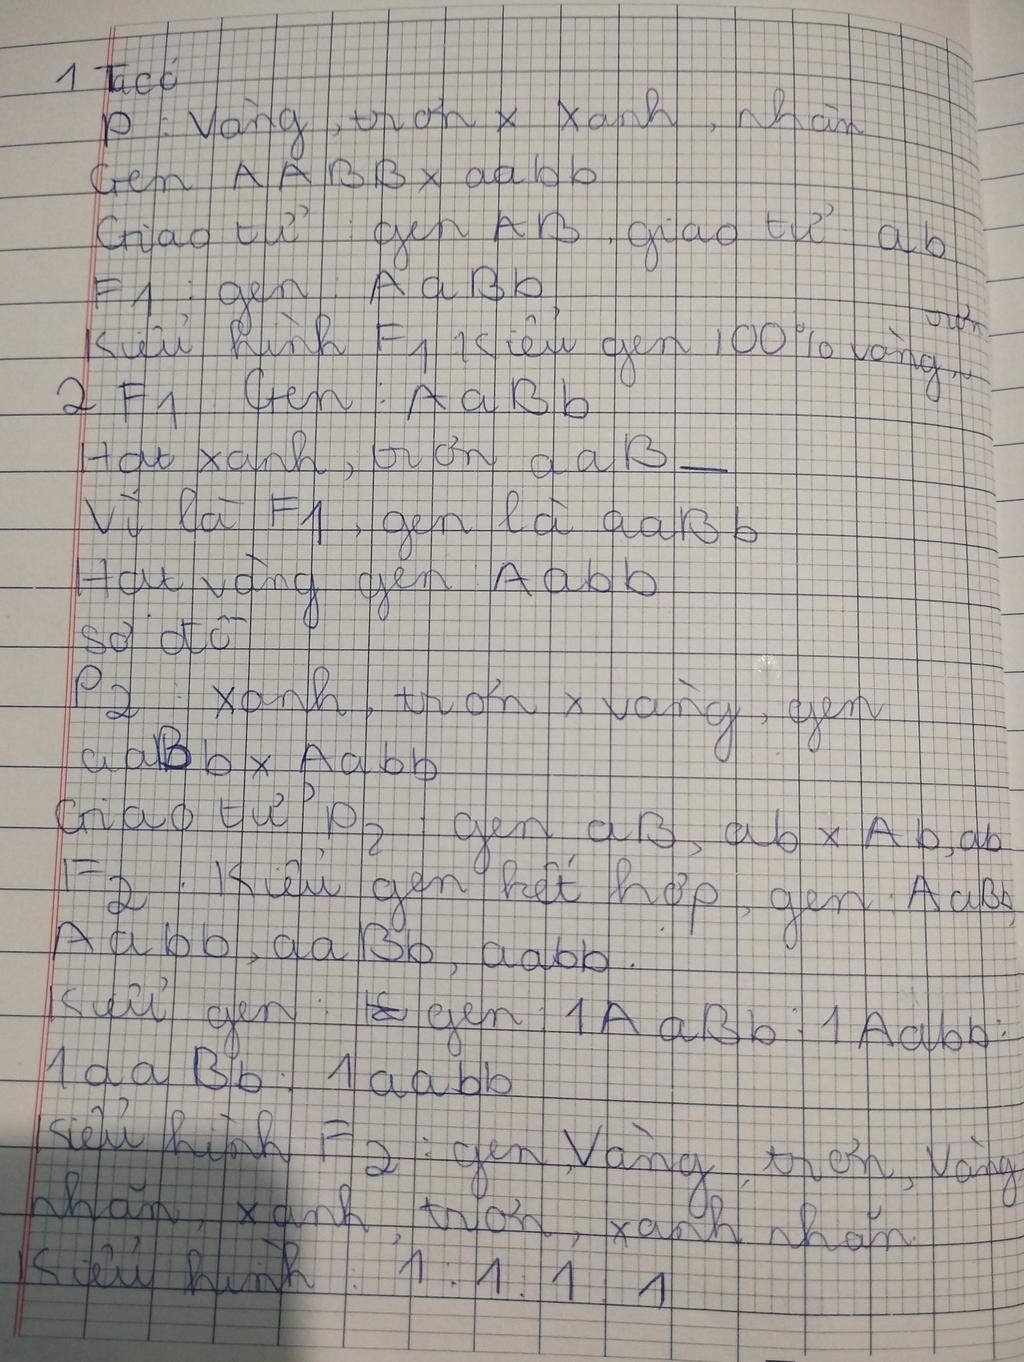 1 Ta có
P : Vàng, trơn x xanh, nhăn
Gen AABB x aabb
Giao tử : gen AB, giao tử ab
F1 : gen : AaBb
Kiểu hình F1 kiểu gen 100% vàng, trơn
2 F1 : Gen : AaBb
Hạt xanh, trơn aaB_
Vì là F1, gen là aaBb
Hạt vàng gen Aabb
sơ đồ
P2 : xanh, trơn x vàng, gen
aaBb x Aabb
Giao tử P2 : gen aB, ab x Ab, ab
F2 : Kiểu gen kết hợp, gen : AaBb,
Aabb, aaBb, aabb.
Kiểu gen : gen : 1AaBb : 1Aabb :
1aaBb : 1aabb
Kiểu hình F2 : gen, Vàng, trơn, Vàng,
nhăn, xanh, trơn, xanh nhăn
Kiểu hình : 1 : 1 : 1 : 1